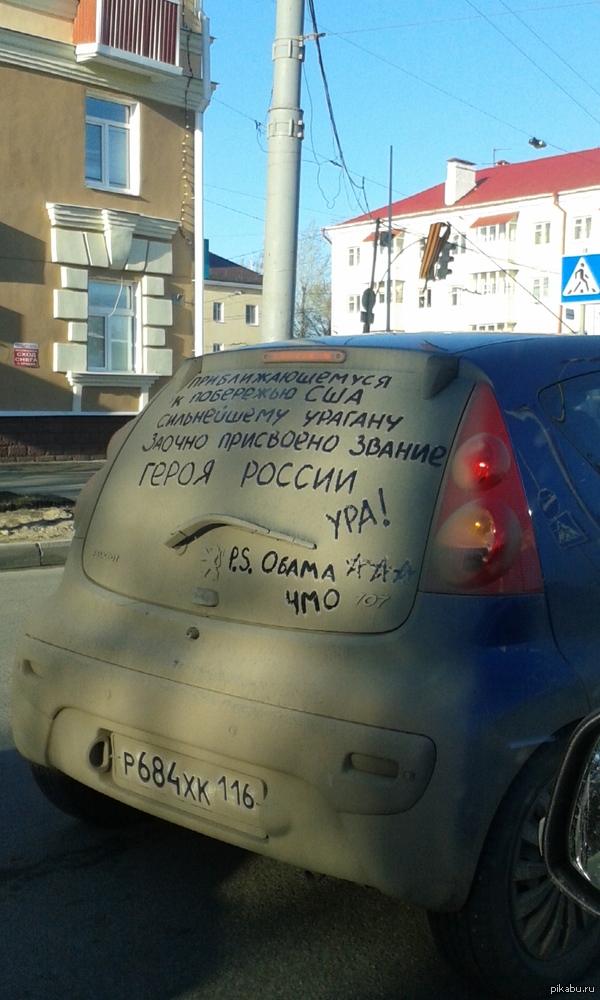 СХОД
СНЕГА
ПРИБЛИЖАЮЩЕМУСЯ
К ПОБЕРЕЖЬЮ США
СИЛЬНЕЙШЕМУ УРАГАНУ
ЗАОЧНО ПРИСВОЕНО ЗВАНИЕ
ГЕРОЯ РОССИИ
УРА!
P.S. ОБАМА
ЧМО
107
Р684ХК 116
pikabu.ru